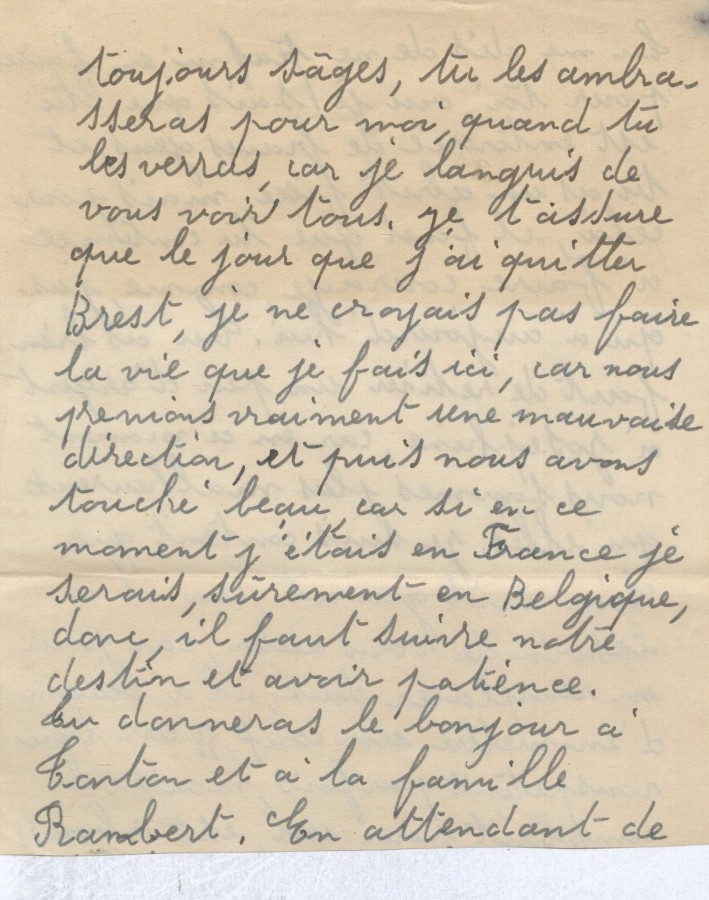 toujours sâges, tu les ambra-
sseras pour moi, quand tu
les verras, car je languis de
vous voir tous. je t'assure
que le jour que j'ai quitter
Brest, je ne croyais pas faire
la vie que je fais ici, car nous
prenions vraiment une mauvaise
direction, et puis nous avons
touché beau, car si en ce
moment j'étais en France je
serais, sûrement en Belgique,
donc, il faut suivre notre
destin et avoir patience.
Tu donneras le bonjour à
Tonton et à la famille
Rambert. En attendant de